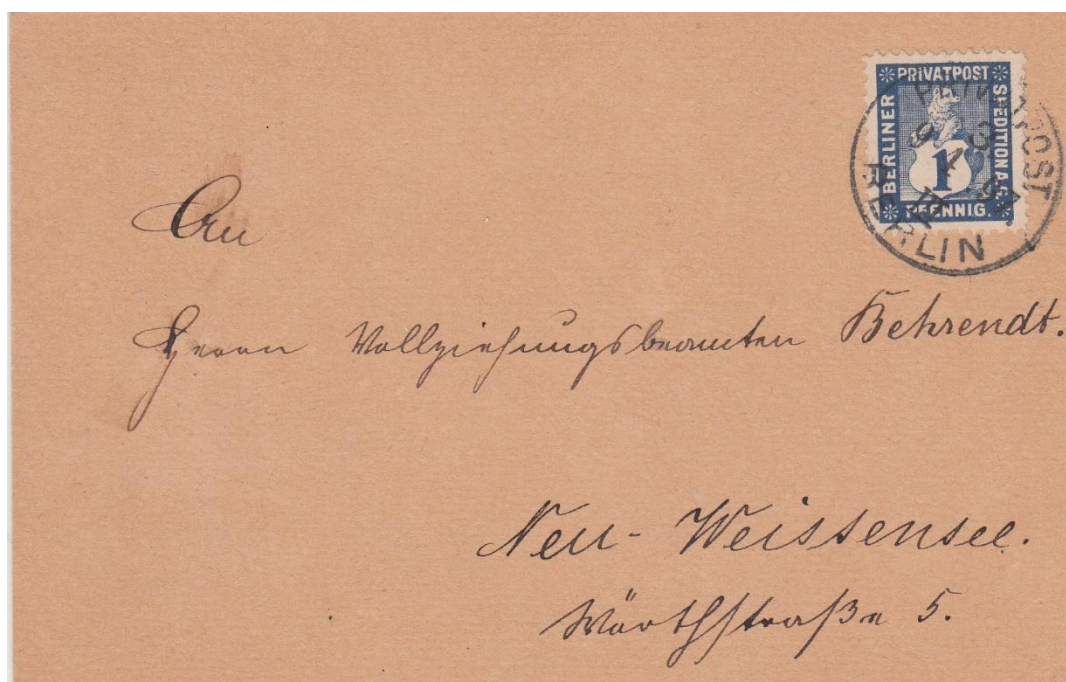 PRIVATPOST
BERLINER
SPEDITION A.G.
1
PFENNIG.
BERLIN
An
Herrn Vollziehungsbeamten Behrendt.
Neu-Weissensee.
Wörthstraße 5.